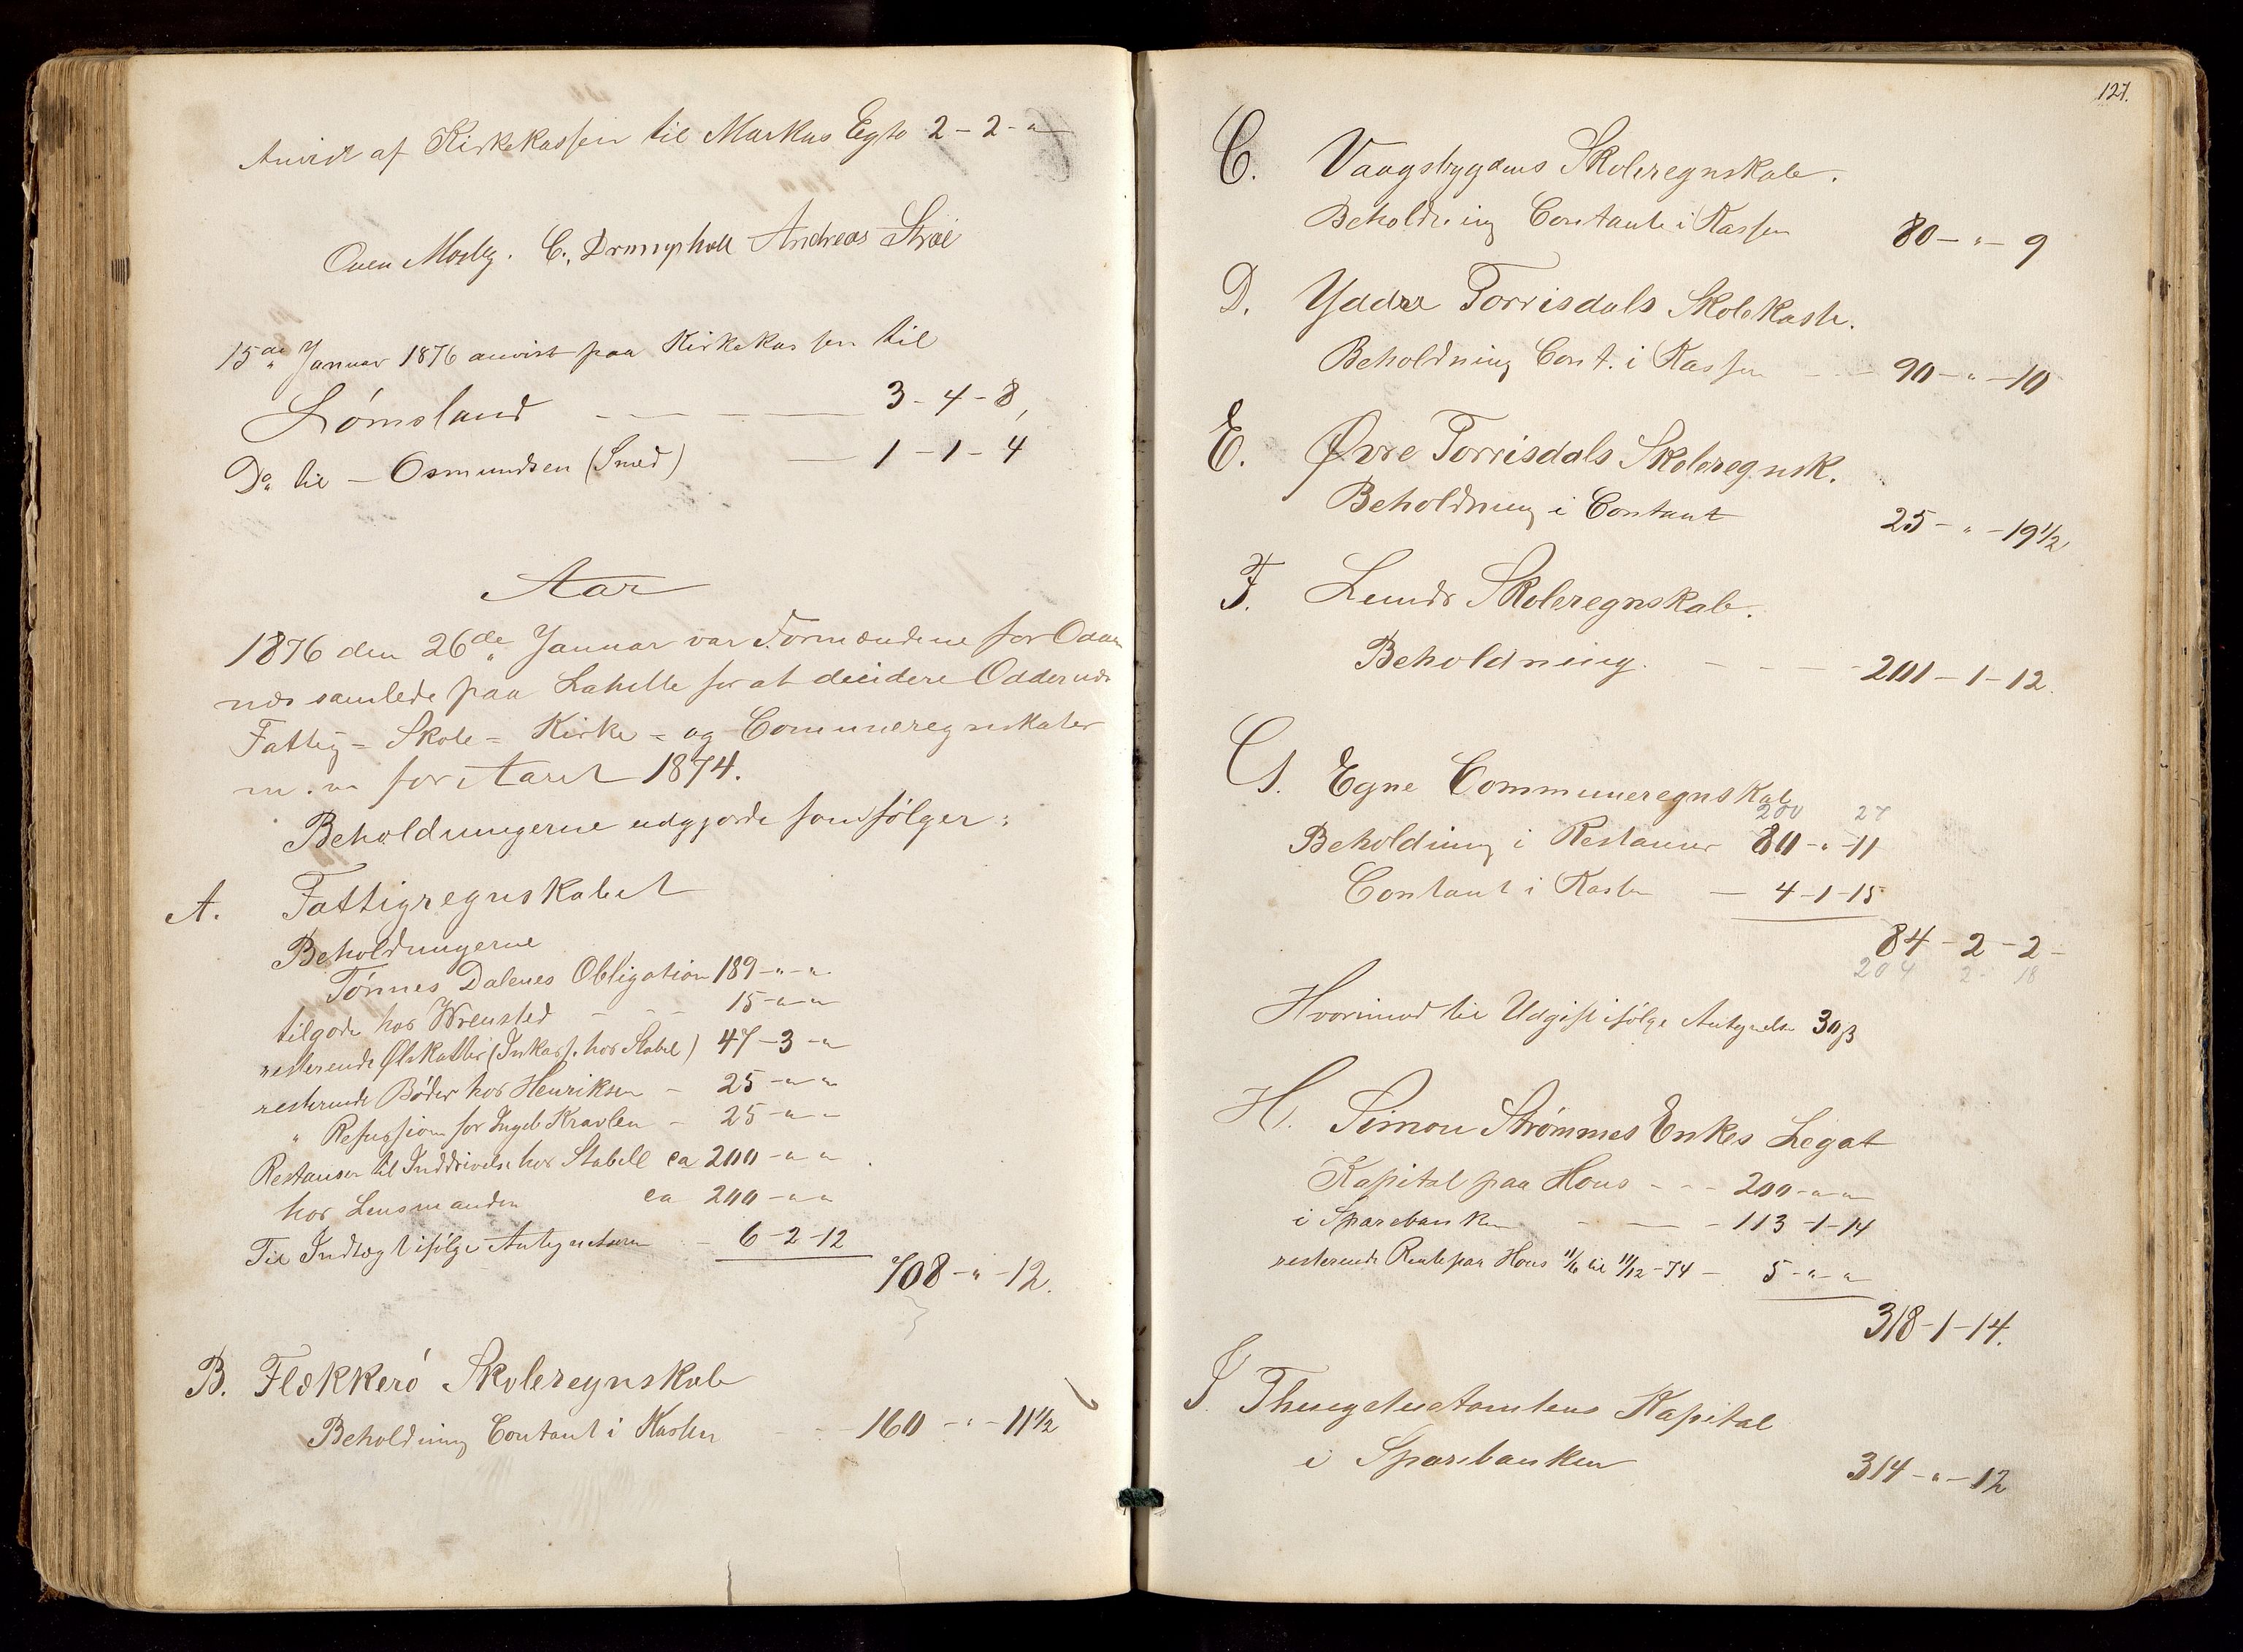 Anvist af Kirkekassen til Markus Egho 2 - 2 - "
Ouen Mosby. C. Drangsholt Andreas Strøe
15de Januar 1876 anvist paa Kirkekassen til
Lømsland 3 - 4 - 8,
Do. til - Osmundsen (Smed) 1 - 1 - 4
Aar
1876 den 26de Januar var Formændene for Odder
næs samlede paa Lahelle for at decidere Oddernæs
Fattig- Skole- Kirke- og Communeregnskaber
m.m for Aaret 1874.
Beholdningerne udgjorde som følger:
A. Fattigregnskabet
Beholdningerne
Tønnes Dalenes Obligation 189 - " - "
tilgode hos Wrensted 15 - " - "
resterende Ølskatter (Inkass. hos Stabel) 47 - 3 - "
resterende Bøder hos Henriksen - 25 - " - "
" Refussion for Ingeb Kravlen - 25 - " - "
Restanser til Inddrivelse hos Stabell ca 200 - " - "
hos Lensmanden ca 200 - " - "
Til Indtægt ifølge Antegnelserne - 6 - 2 - 12
708 - " - 12.
B. Flekkerø Skoleregnskab
Beholdning Contant i Kassen 160 - " - 11 1/2
127.
C. Vaagsbygdens Skoleregnskab.
Beholdning Contant i Kassen 80 - " - 9
D. Yddre Torrisdals Skolekasse.
Beholdning Cont. i Kassen 90 - " - 10
E. Øvre Torrisdals Skoleregnsk.
Beholdning i Contant 25 - " - 19 1/2
F. Lunds Skoleregnskab.
Beholdning. 201 - 1 - 12.
G. Egne Communeregnskab
200 27
Beholdning i Restancer 80 - " - 11
Contant i Kassen - 4 - 1 - 15
84 - 2 - 2 -
204 2 - 18
Hvorimod til Udgift ifølge Antegnelse 30 β
H. Simon Strømmes Enkes Legat
Kapital paa Hous - - - 200 - " - "
i Sparebanken - 113 - 1 - 14
resterende Rente paa Hous 11/6 til 11/12 - 74 - 5 - " - "
318 - 1 - 14.
I. Kapital
i Sparebanken 314 - " - 12